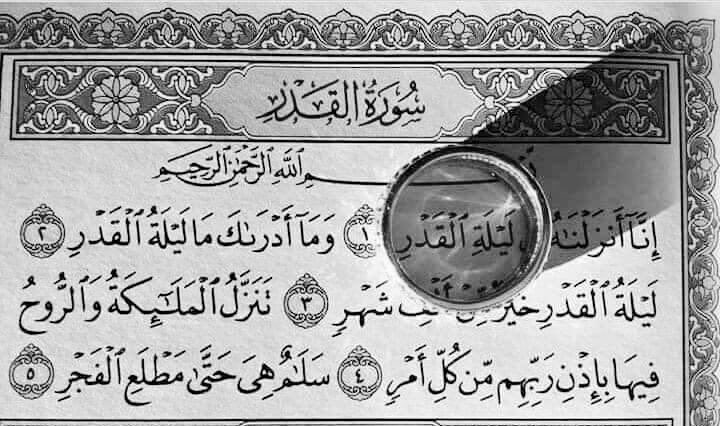 سُورَةُ القَدْرِ
ٱللَّهِ ٱلرَّحْمَٰنِ ٱلرَّحِيمِ
إِنَّآ أَنزَلْنَٰهُ لَيْلَةِ ٱلْقَدْرِ ١ وَمَآ أَدْرَىٰكَ مَا لَيْلَةُ ٱلْقَدْرِ ٢
لَيْلَةُ ٱلْقَدْرِ خَيْرٌ شَهْرٍ ٣ تَنَزَّلُ ٱلْمَلَٰٓئِكَةُ وَٱلرُّوحُ
فِيهَا بِإِذْنِ رَبِّهِم مِّن كُلِّ أَمْرٍ ٤ سَلَٰمٌ هِىَ حَتَّىٰ مَطْلَعِ ٱلْفَجْرِ ٥